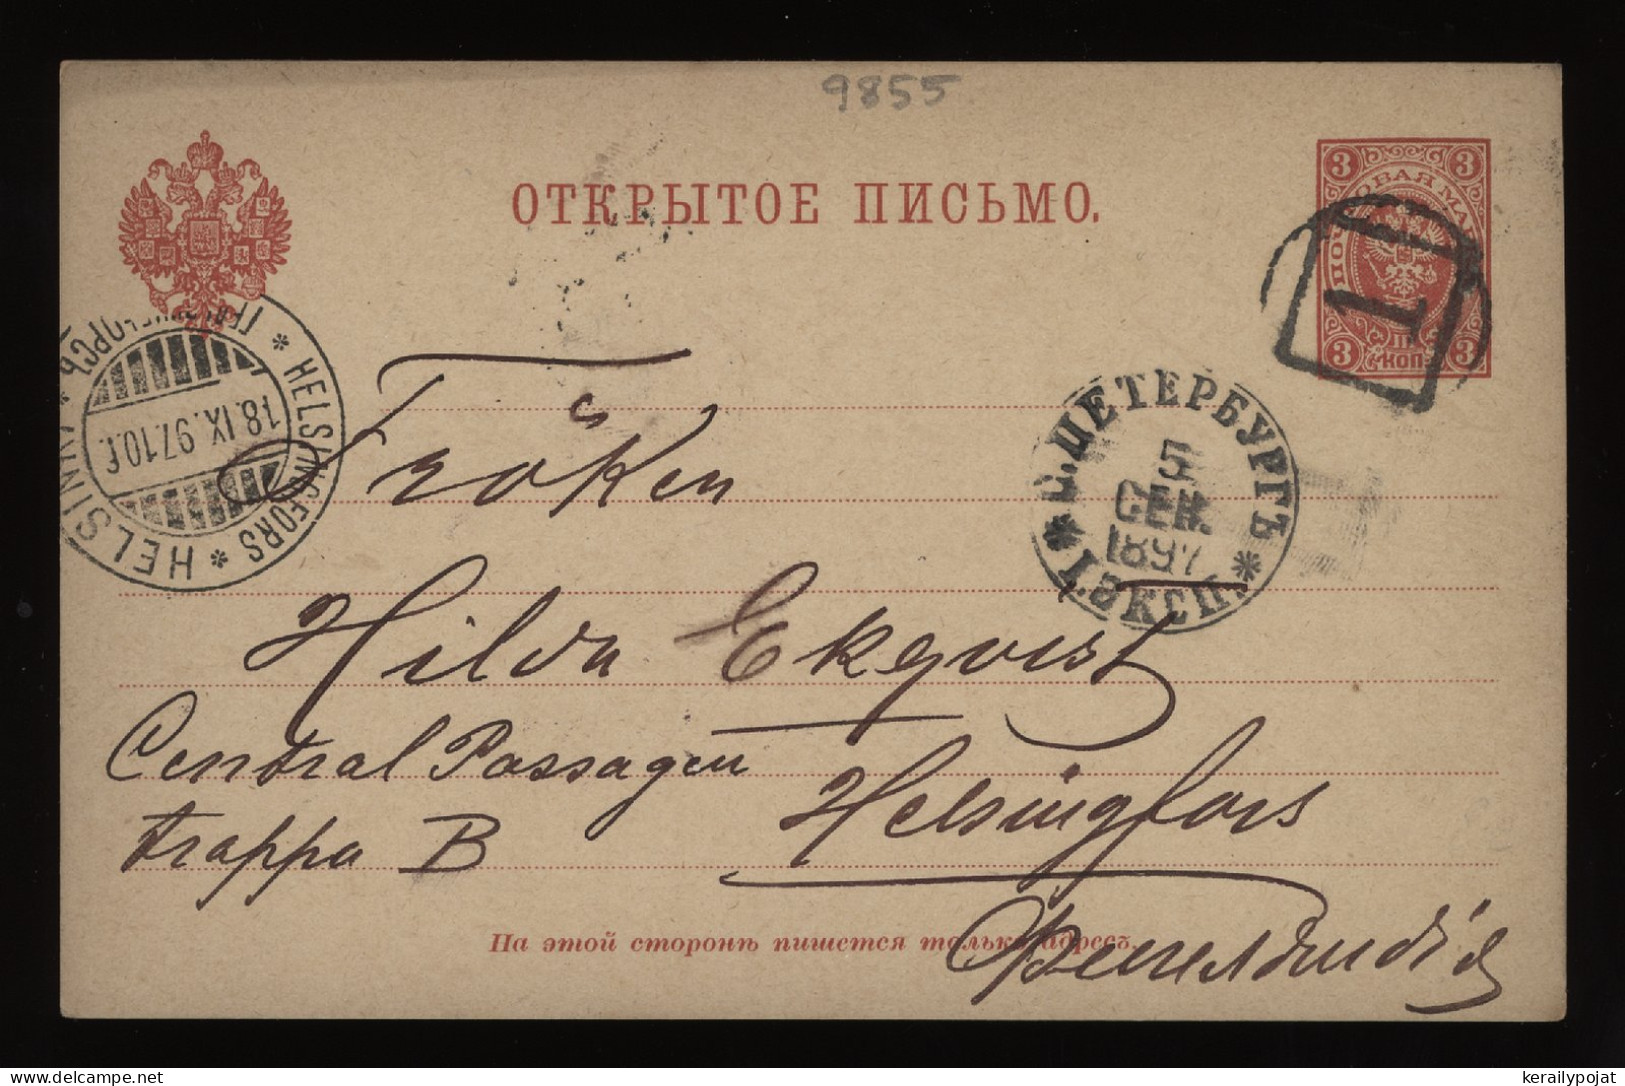 9855
ОТКРЫТОЕ ПИСЬМО.
3 3
ПОЧТОВАЯ МАР
3 КОП 3
1
HELSINGFORS * HELSINKI *
18.IX.97.10.f.
С.ПЕТЕРБУРГЪ
5
СЕН.
1897
* 1.ЭКСП. *
Fröken
Hilda Ekqvist
Central Passagen
Helsingfors
trappa B
На этой сторонѣ пишется только адресъ.
Финляндія
kerailypojat